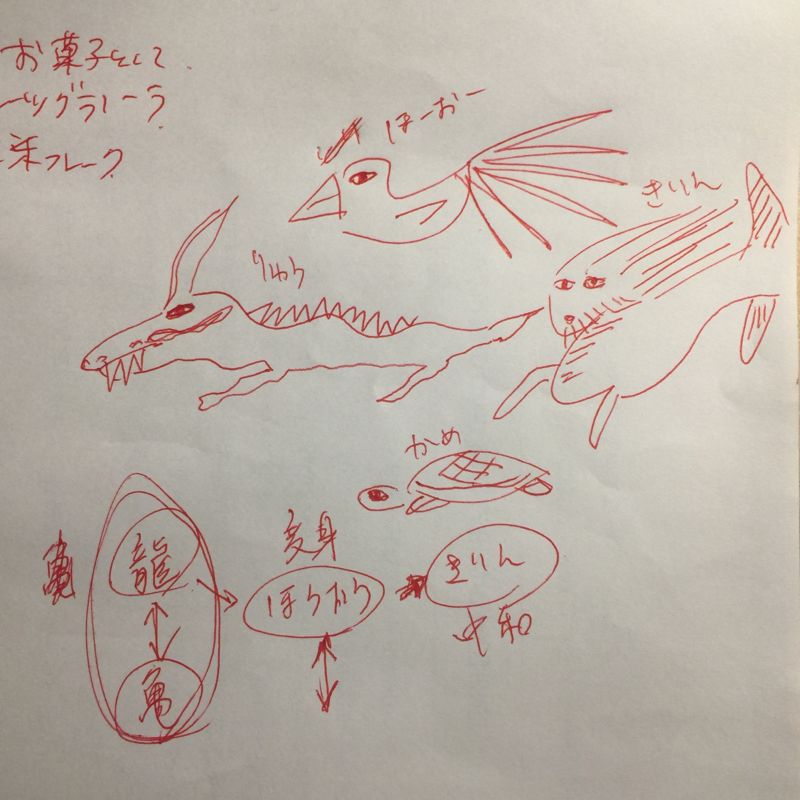 お菓子として
ツグラノーラ
米フレーク
ほーおー
きりん
りゅう
かめ
変身
龍
ほうおう
きりん
中和
亀